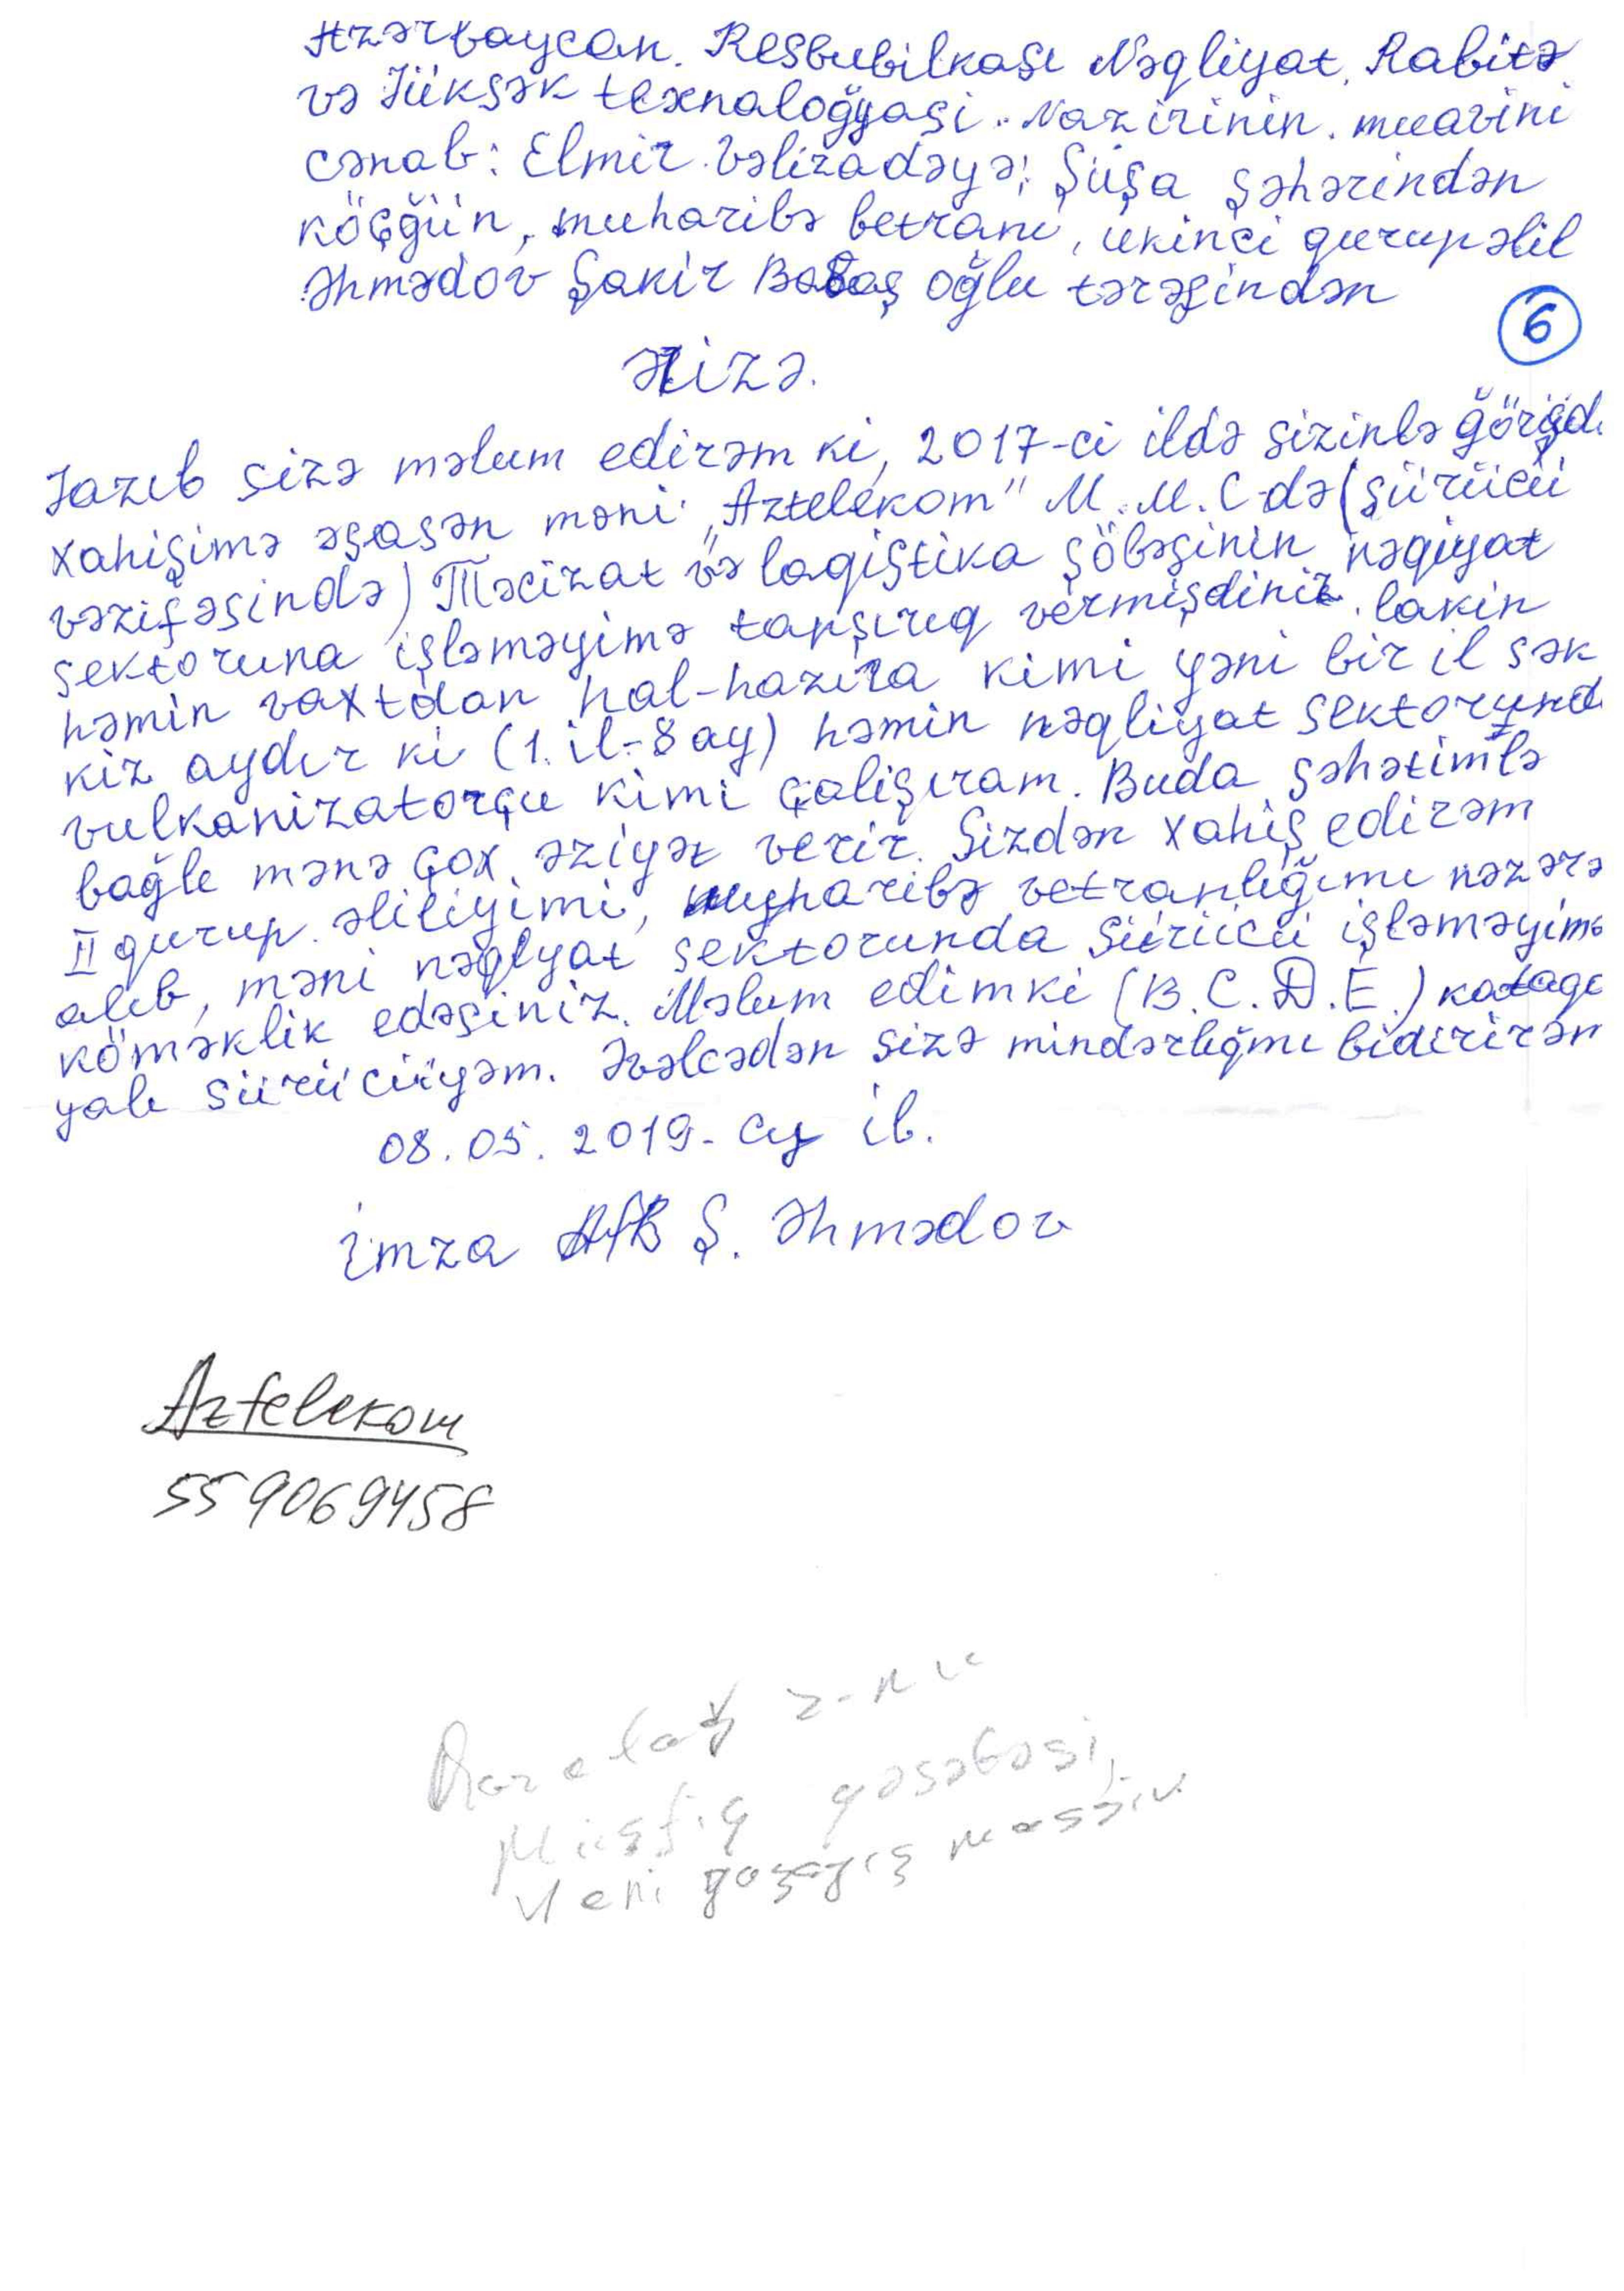 Azərbaycan. Resbubilkası Nəqliyat, Rabitə
və Yüksək texnaloğyasi. Nazirinin. muavini
cənab: Elmir Vəlizadəyə; Şüşa şəhərindən
köçğün, muharibə betranı, ikinci qurup əlil
Əhmədov Şakir Babaş oğlu tərəfindən
6
Ərizə.
Yazıb sizə məlum edirəm ki, 2017-ci ildə sizinlə görüşd
xahişimə əsasən məni "Aztelekom" M.M.C-də (sürücü
vəzifəsində) Təcizat və logistika şöbəsinin nəqiyat
sektoruna işləməyimə tapşırıq vermişdiniz. lakin
həmin vaxtdan hal-hazıra kimi yəni bir il sək
kiz aydır ki (1.il-8ay) həmin nəqliyat sektorund
vulkanizatorçu kimi çalişıram. Buda səhətimlə
bağlı mənə çox əziyət verir. Sizdən xahiş edirəm
II qurup əliliyimi, muharibə vetranlığımı nəzərə
alıb, məni nəqlyat sektorunda sürücü işləməyimə
köməklik edəsiniz. Məlum edimki (B.C.D.E.) katago
yalı sürücüyəm. Əvəlcədən sizə mindərlığmı bidirirəm
08.05.2019-cy il.
imza Ş. Əhmədov
Aztelekom
559069458
z-nu
Müşfiq qəsəbəsi,
Yeni yaşayış massiv.